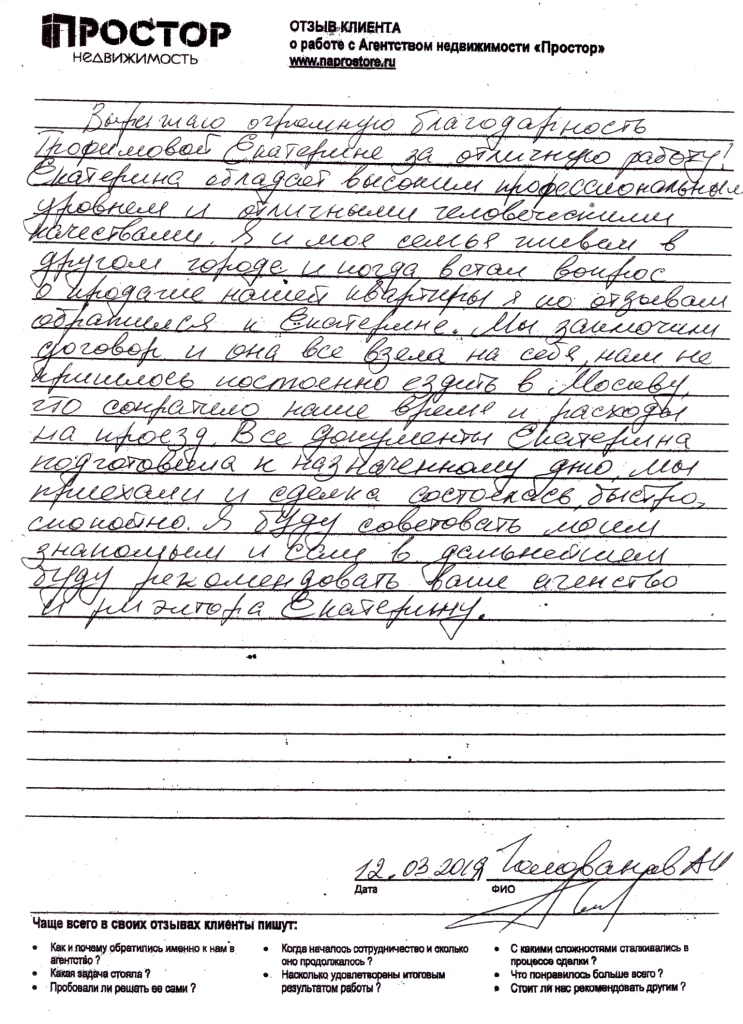 ПРОСТОР
НЕДВИЖИМОСТЬ
ОТЗЫВ КЛИЕНТА
о работе с Агентством недвижимости «Простор»
www.naprostore.ru
Выражаю огромную благодарность
Трофимовой Екатерине за отличную работу!
Екатерина обладает высоким профессиональным
уровнем и отличными человеческими
качествами. Я и моя семья живем в
другом городе и когда встал вопрос
о продаже нашей квартиры я по отзывам
обратился к Екатерине. Мы заключили
договор и она все взела на себя, нам не
пришлось постоенно ездить в Москву,
что сократило наше время и расходы
на проезд. Все документы Екатерина
подготовила к назначенному дню, мы
приехали и сделка состоялась, быстро,
спокойно. Я буду советовать моим
знакомым и сам в дальнейшем
буду рекомендовать ваше агенство
и риэлтора Екатерину.
12.03.2019 Голованов АИ
Дата ФИО
Чаще всего в своих отзывах клиенты пишут:
• Как и почему обратились именно к нам в
агентство ?
• Какая задача стояла ?
• Пробовали ли решать ее сами ?
• Когда началось сотрудничество и сколько
оно продолжалось ?
• Насколько удовлетворены итоговым
результатом работы ?
• С какими сложностями сталкивались в
процессе сделки ?
• Что понравилось больше всего ?
• Стоит ли нас рекомендовать другим ?